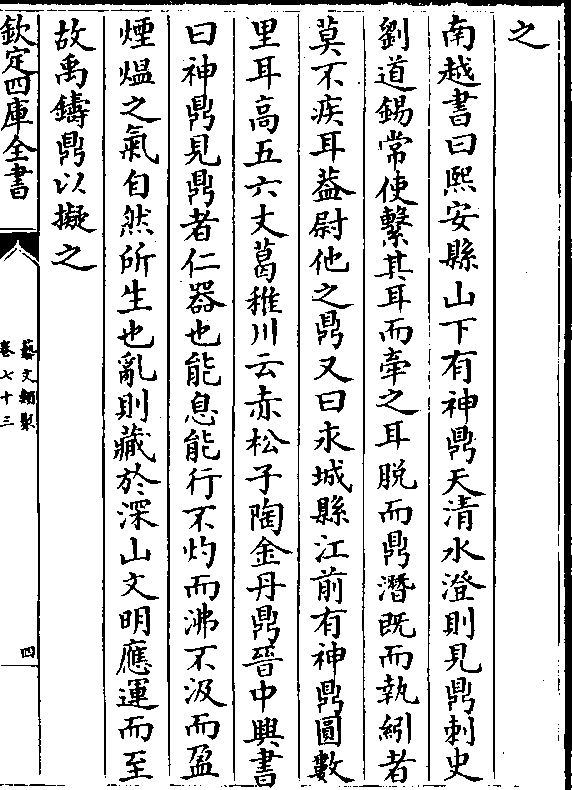 之
南越書曰熙安縣山下有神鼎天清水澄則見鼎刺史
劉道錫常使繫其耳而牽之耳脱而鼎潛既而執紖者
莫不疾耳葢尉他之鼎又曰求城縣江前有神鼎圓數
里耳高五六丈葛稚川云赤松子陶金丹鼎晉中興書
曰神鼎見鼎者仁器也能息能行不灼而沸不汲而盈
煙熅之氣自然所生也亂則藏於深山文明應運而至
故禹鑄鼎以擬之
欽定四庫全書
藝文類聚
卷七十三
四